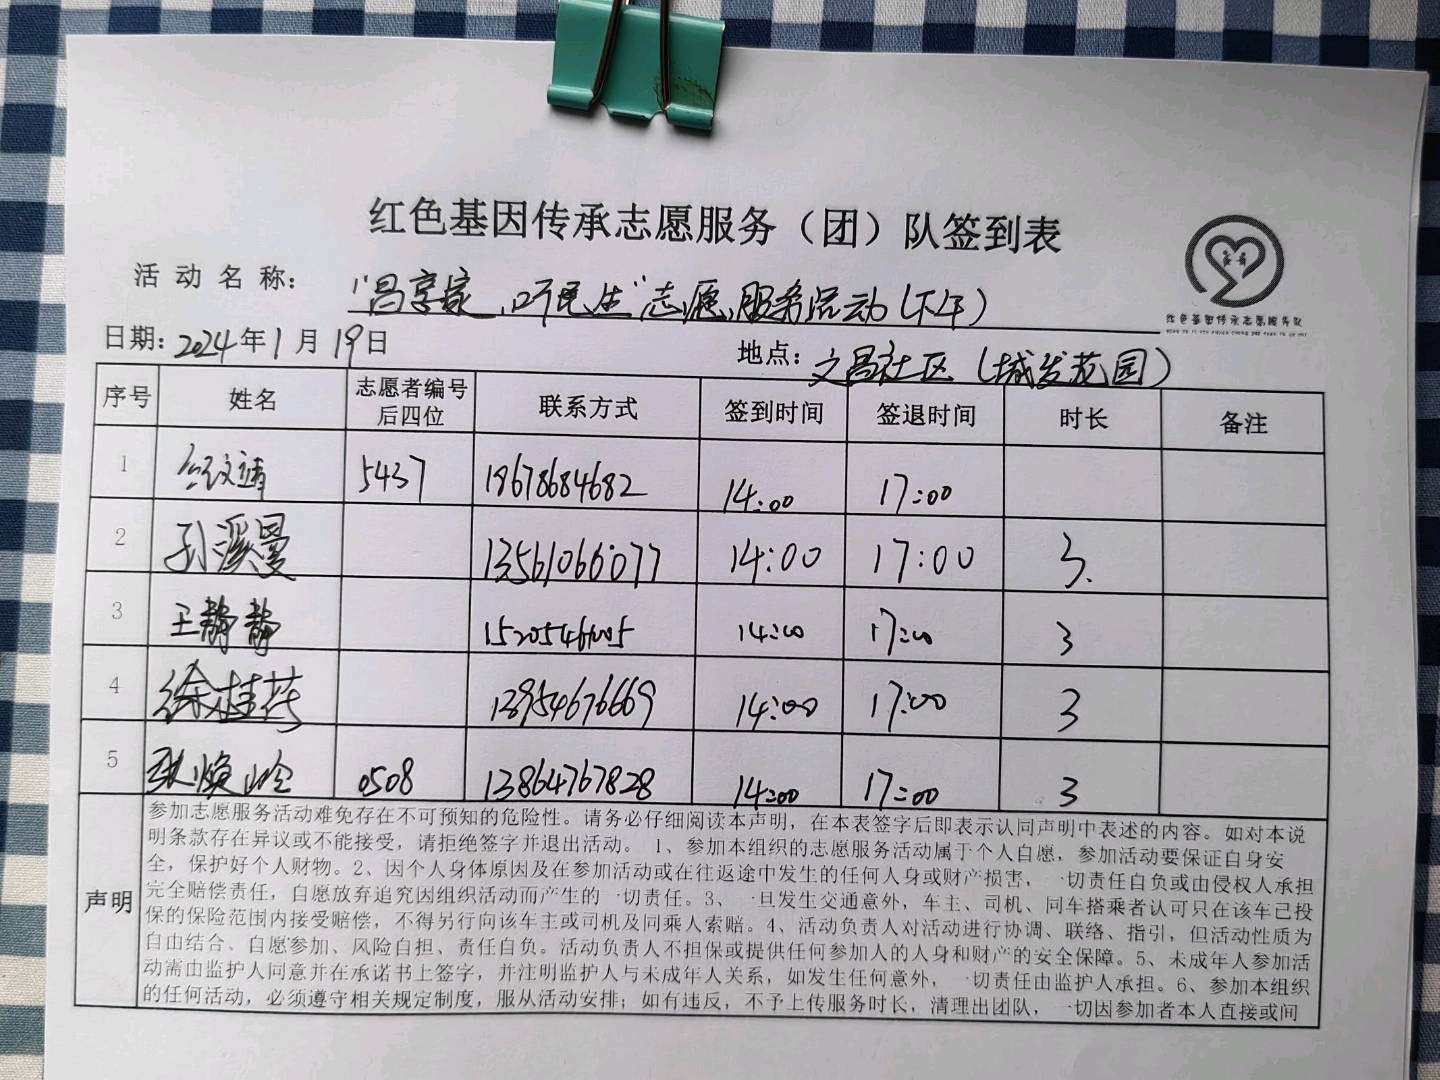 红色基因传承志愿服务（团）队签到表
活动名称： “昌享家，听民生”志愿服务活动(下午)
红色基因传承志愿服务队
日期：2024年1月19日 地点：文昌社区（城发花园）
序号 姓名 志愿者编号后四位 联系方式 签到时间 签退时间 时长 备注
1 文靖 5437 18678684682 14:00 17:00
2 孙溪曼 13561066077 14:00 17:00 3.
3 王静静 14:00 17:00 3
4 徐桂花 13954676669 14:00 17:00 3
5 张焕岭 0508 13864767828 14:00 17:00 3
声明
参加志愿服务活动难免存在不可预知的危险性。请务必仔细阅读本声明，在本表签字后即表示认同声明中表述的内容。如对本说
明条款存在异议或不能接受，请拒绝签字并退出活动。 1、参加本组织的志愿服务活动属于个人自愿，参加活动要保证自身安
全，保护好个人财物。2、因个人身体原因及在参加活动或在往返途中发生的任何人身或财产损害，一切责任自负或由侵权人承担
完全赔偿责任，自愿放弃追究因组织活动而产生的一切责任。3、一旦发生交通意外，车主、司机、同车搭乘者认可只在该车已投
保的保险范围内接受赔偿，不得另行向该车主或司机及同乘人索赔。4、活动负责人对活动进行协调、联络、指引，但活动性质为
自由结合、自愿参加、风险自担、责任自负。活动负责人不担保或提供任何参加人的人身和财产的安全保障。5、未成年人参加活
动需由监护人同意并在承诺书上签字，并注明监护人与未成年人关系，如发生任何意外，一切责任由监护人承担。6、参加本组织
的任何活动，必须遵守相关规定制度，服从活动安排；如有违反，不予上传服务时长，清理出团队，一切因参加者本人直接或间